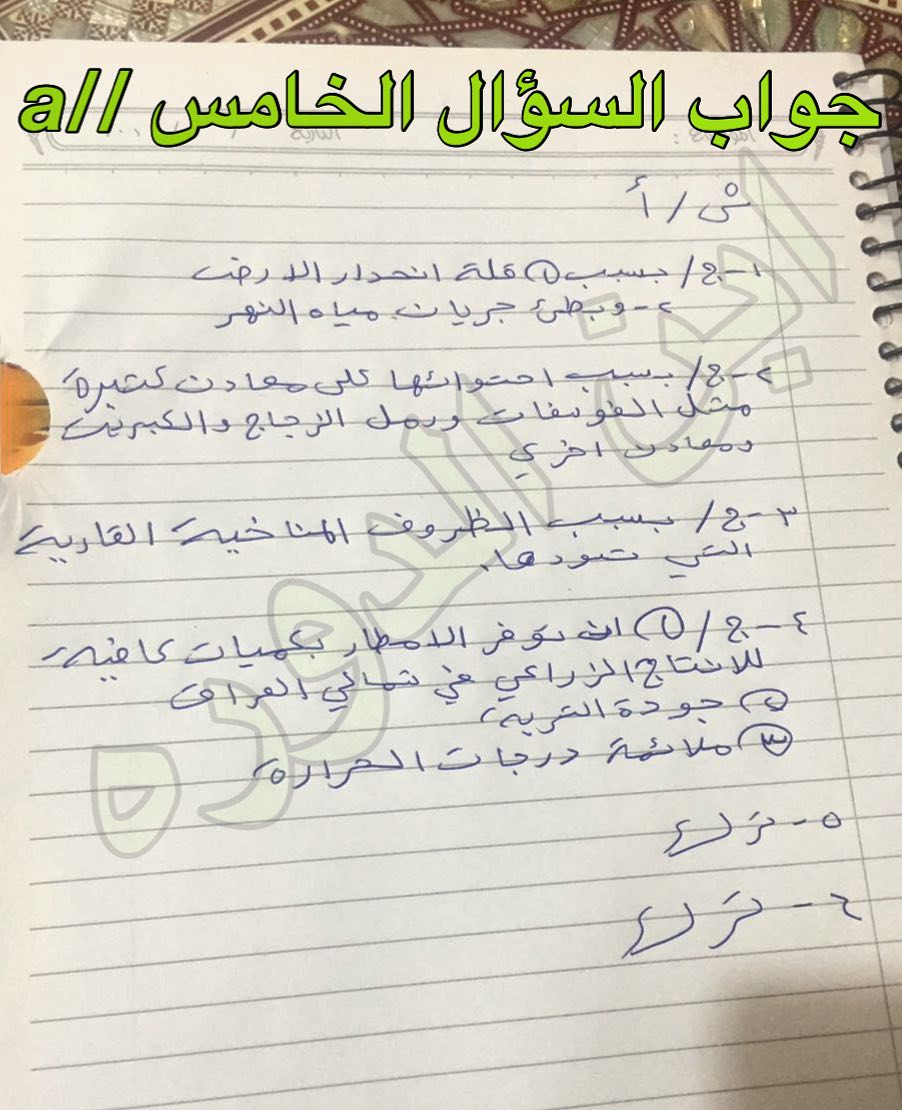 جواب السؤال الخامس //a
س / أ
١-ج/ بسبب ① قلة انحدار الارض
٢- وبطئ جريان مياه النهر
٢-ج/ بسبب احتوائها على معادن كثيرة
مثل الفوسفات ورمل الزجاج والكبريت
ومعادن اخرى
٣-ج/ بسبب الظروف المناخية القارية
التي تسودها.
٤-ج/ ① ان توفر الامطار بكميات كافية
للانتاج الزراعي في شمالي العراق
② جودة التربة
③ ملائمة درجات الحرارة
٥- ترك
٦- ترك
ابن الدورة